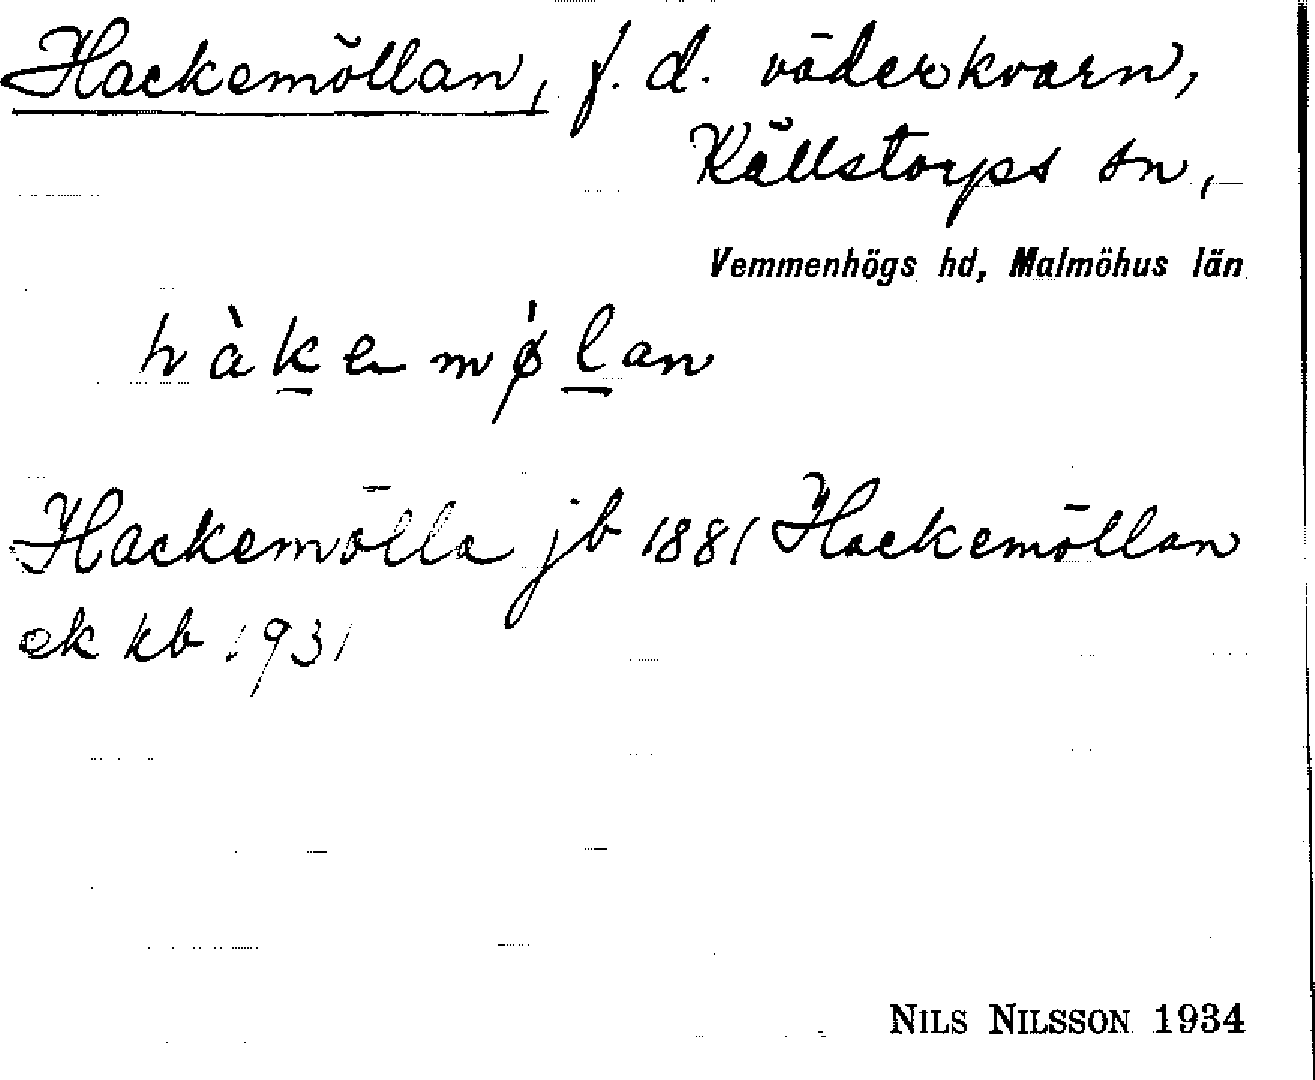 Hackemöllan, f. d. väderkvarn,
Källstorps sn,
Vemmenhögs hd, Malmöhus län
hàkemǿlan
Hackemölla jb 1881 Hackemöllan
ek kb 1931
NILS NILSSON 1934